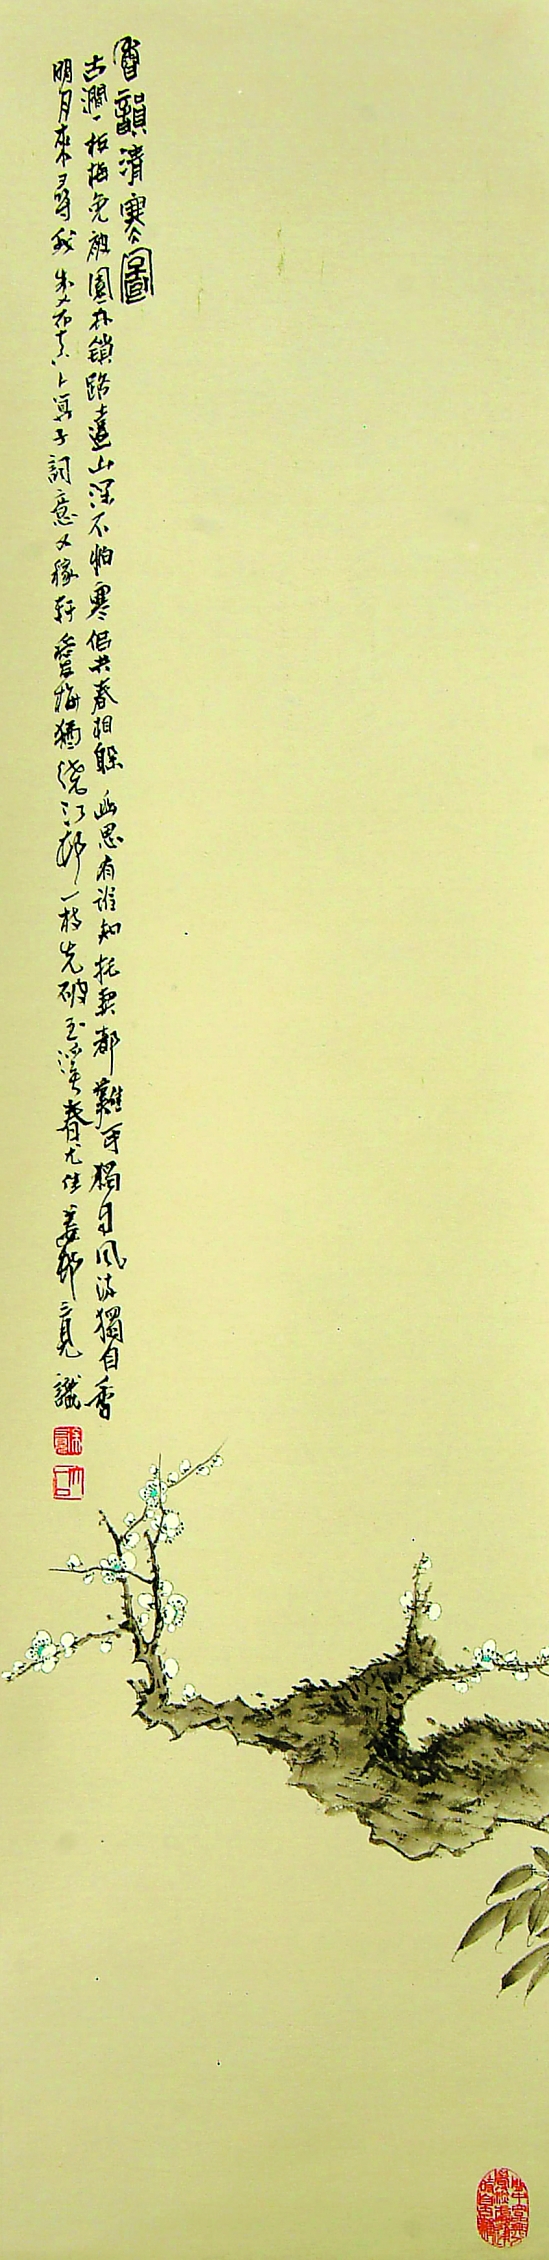 香韻清寒圖
古澗一枝梅免被園林鎖路遠山深不怕寒佀共春相躲幽思有誰知托契都難可獨自風流獨自香
明月來尋我朱希真卜算子詞意又稼軒愛梅猶繞江邨一枝先破玉溪春尤佳邨識